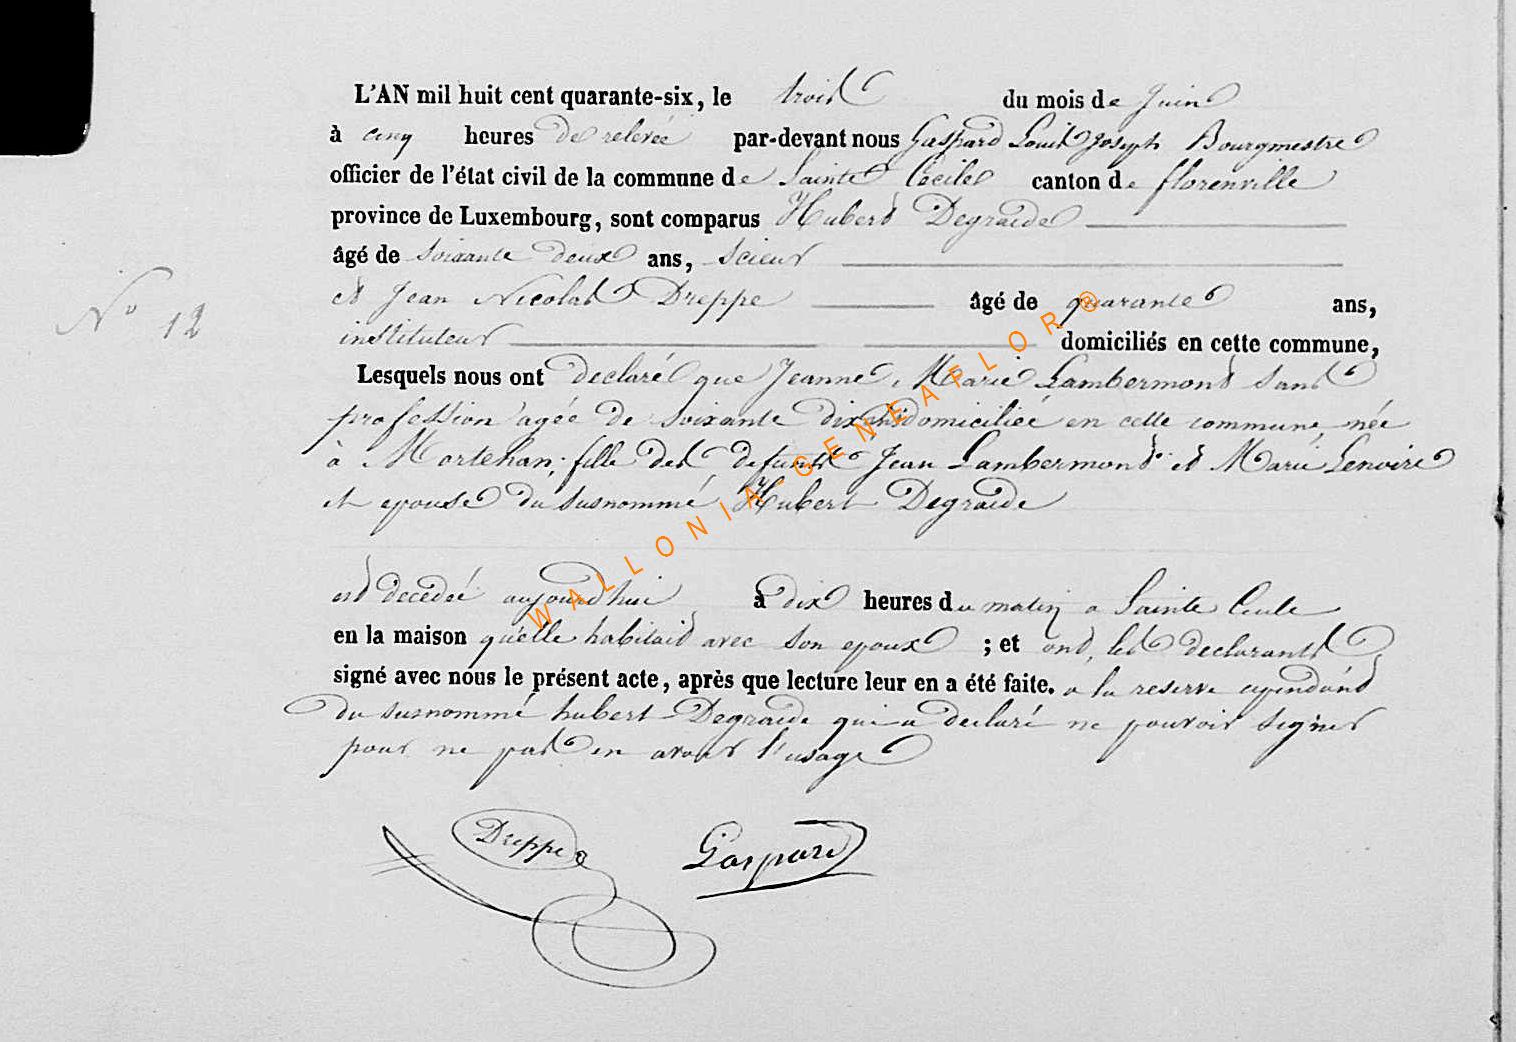 L'AN mil huit cent quarante-six, le trois du mois de Juin
à cinq heures de relevée par-devant nous Gaspard Louis Joseph Bourgmestre
officier de l'état civil de la commune de Sainte Cecile canton de florenville
province de Luxembourg, sont comparus Hubert Degraide
âgé de soixante deux ans, scieur
et Jean Nicolas Dreppe âgé de quarante ans,
N° 12
instituteur domiciliés en cette commune,
Lesquels nous ont declaré que Jeanne Marie Lambermont sans
profession agée de soixante dix ans domiciliée en cette commune, née
à Mortehan; fille des defunts Jean Lambermont et Marie Lenoire
et epouse du susnommé Hubert Degraide
est decedeé aujourdhui à dix heures du matin a Sainte Cecile
en la maison qu'elle habitait avec son epoux ; et ont, les declarants
signé avec nous le présent acte, après que lecture leur en a été faite. a la reserve cependant
du susnommé hubert Degraide qui a declaré ne pouvoir signer
pour ne pas en avoir l'usage
Dreppe Gaspard
WALLONIA-GENEAFLOR®